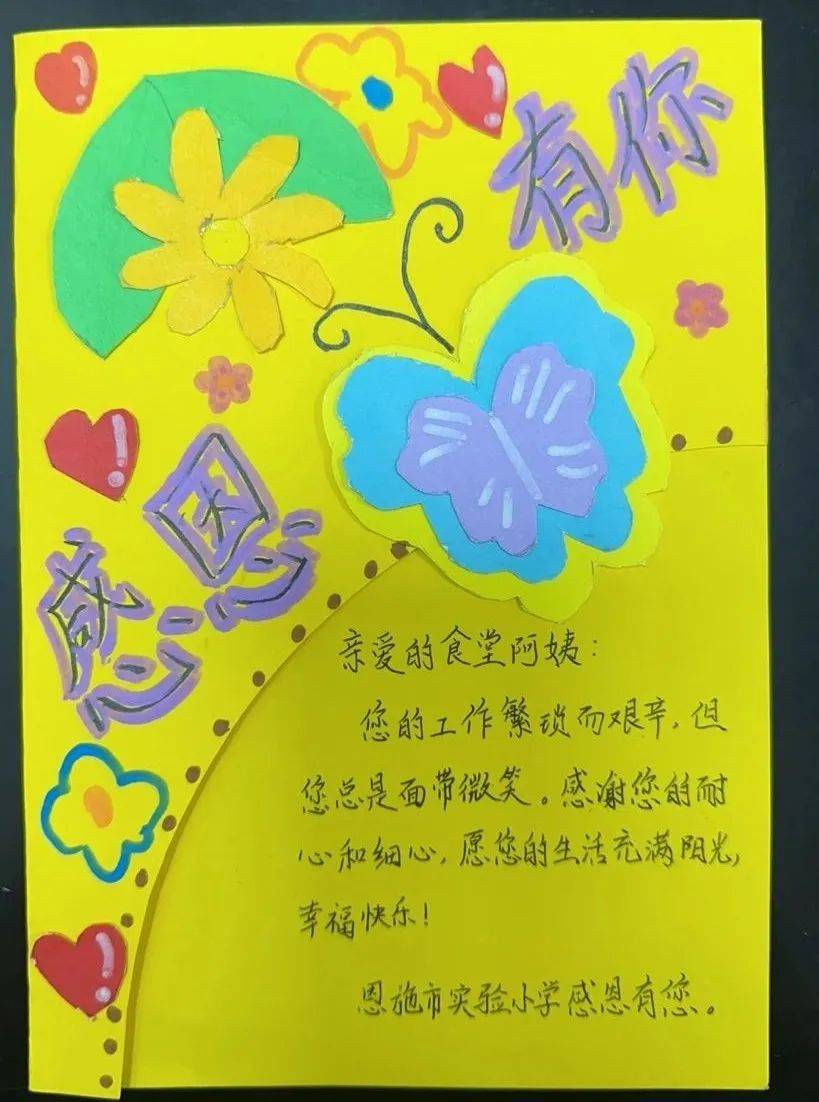 感恩
有你
亲爱的食堂阿姨：
您的工作繁琐而艰辛，但
您总是面带微笑。感谢您的耐
心和细心，愿您的生活充满阳光，
幸福快乐！
恩施市实验小学感恩有您。